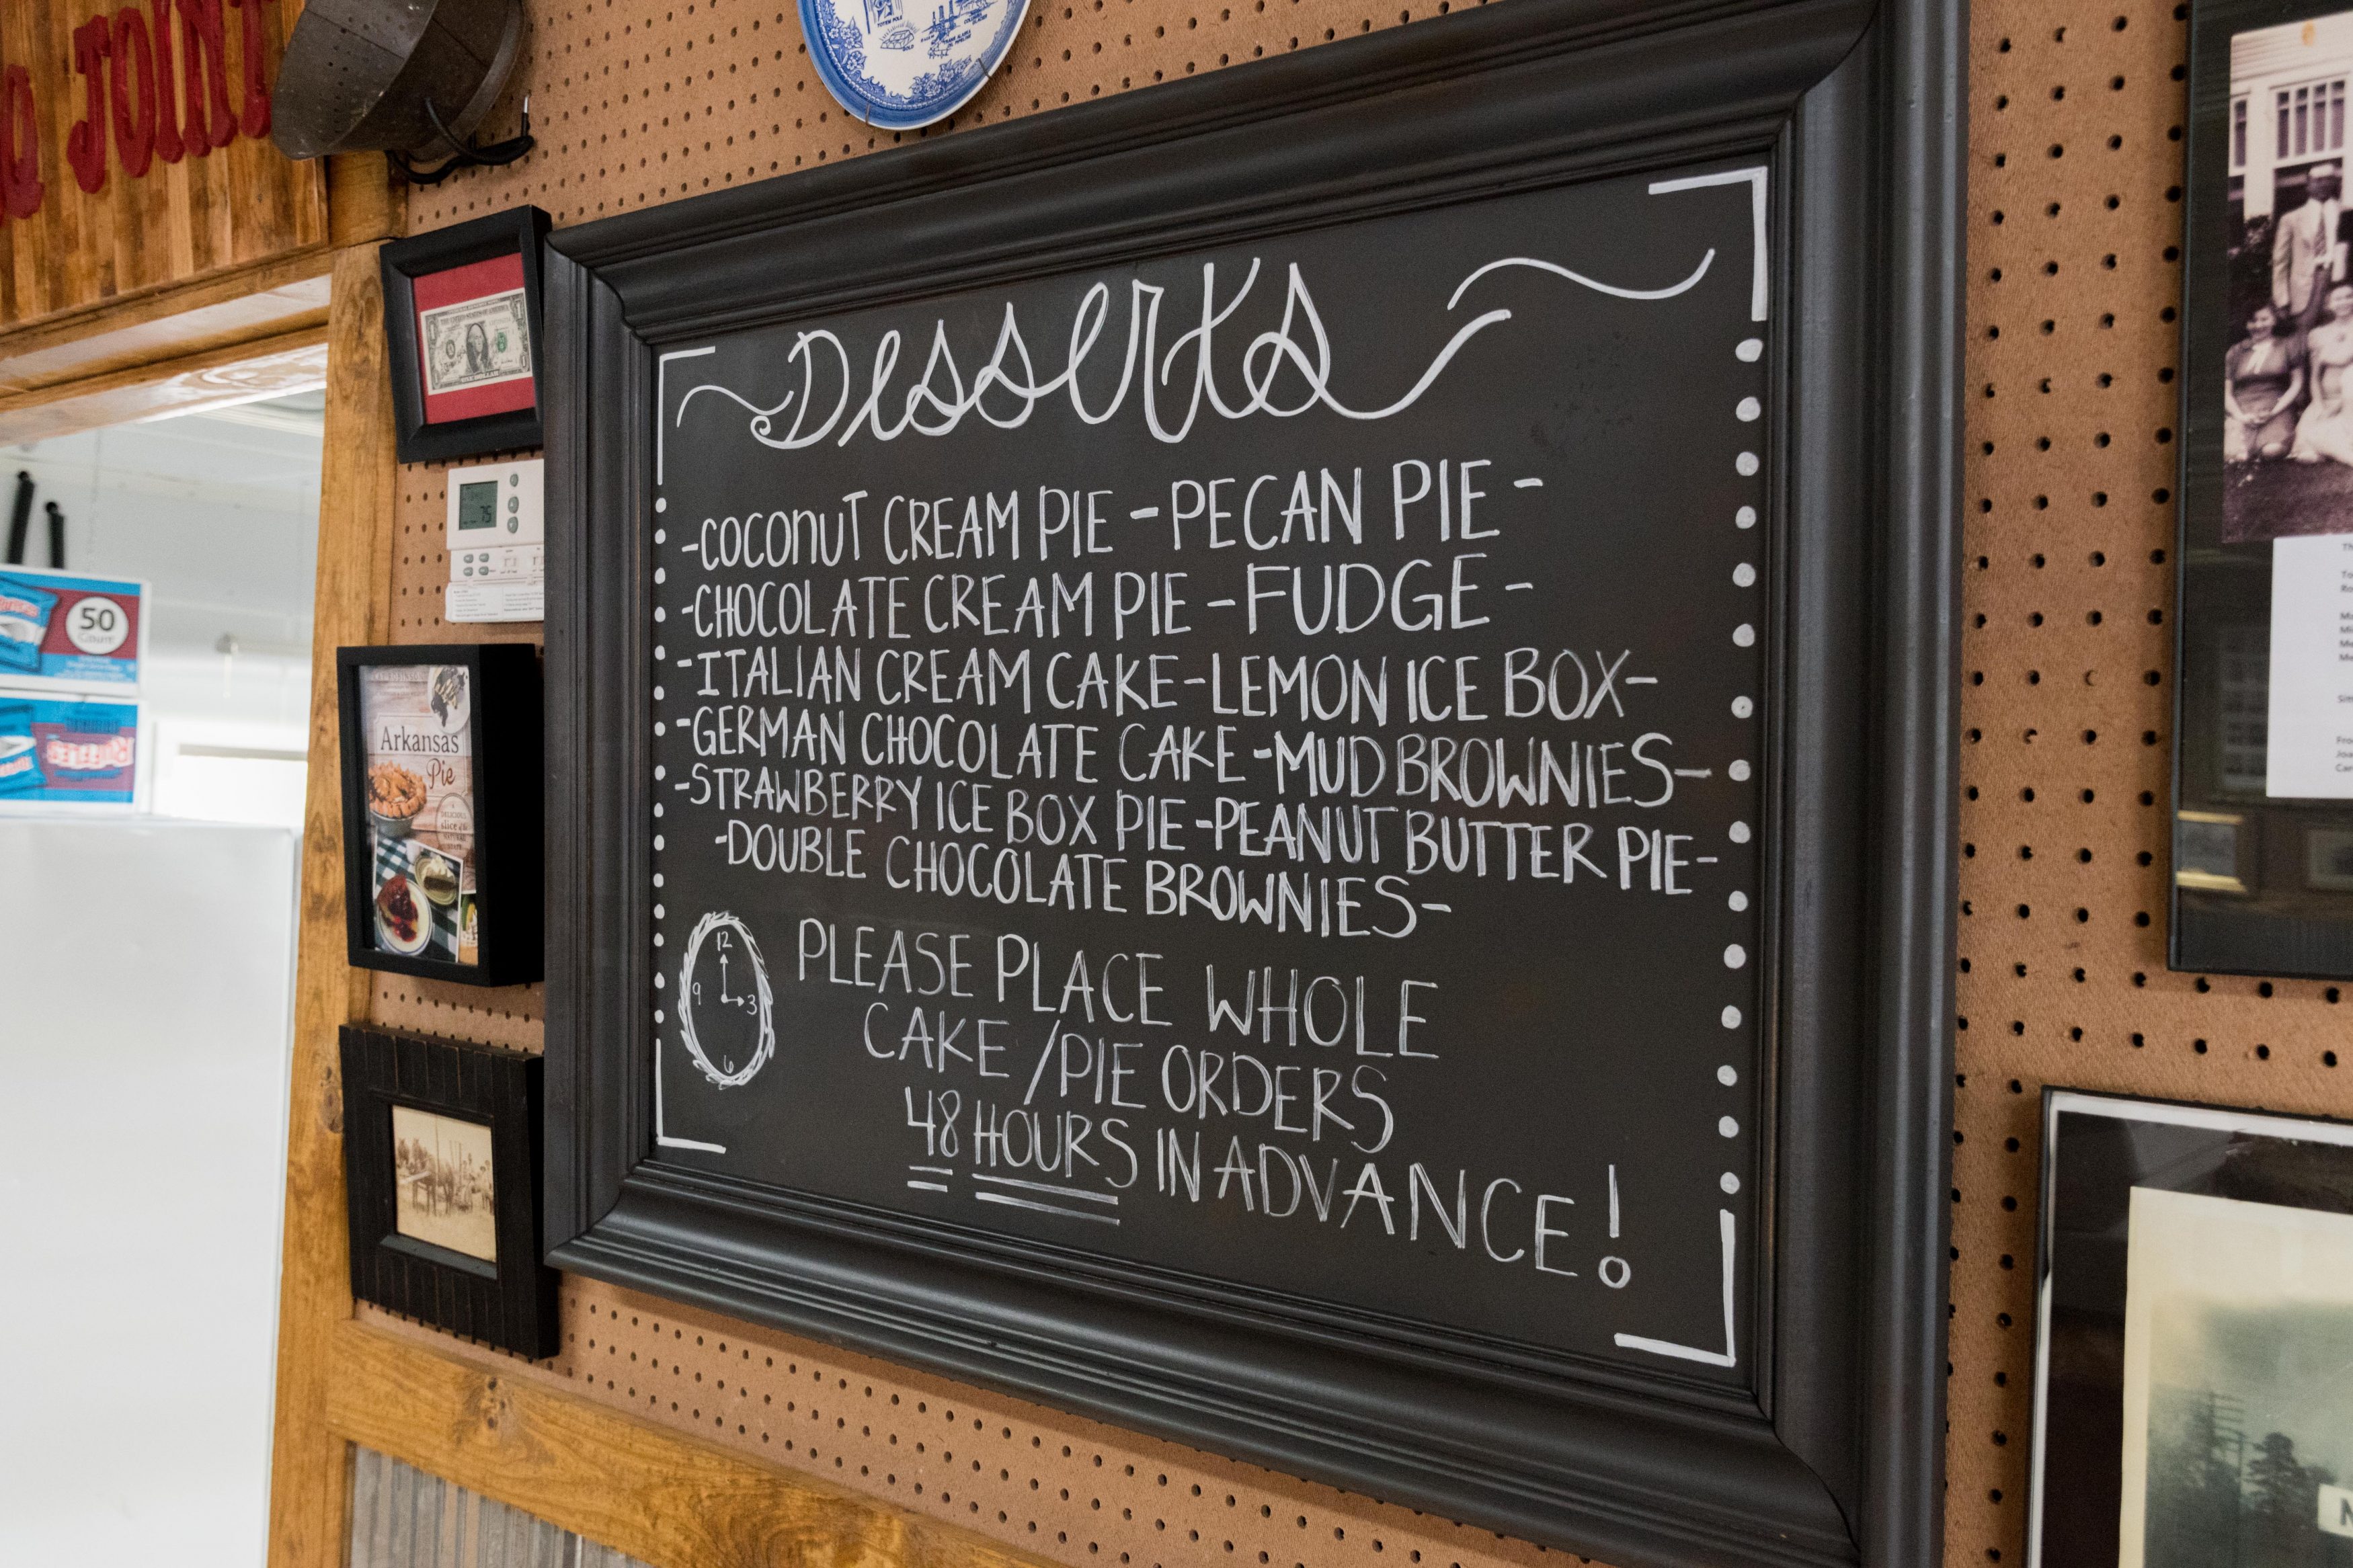 Q JOINT
Desserts
-COCONUT CREAM PIE -PECAN PIE -
-CHOCOLATE CREAM PIE -FUDGE -
-ITALIAN CREAM CAKE-LEMON ICE BOX-
-GERMAN CHOCOLATE CAKE -MUD BROWNIES-
-STRAWBERRY ICE BOX PIE-PEANUT BUTTER PIE-
-DOUBLE CHOCOLATE BROWNIES-
PLEASE PLACE WHOLE
CAKE /PIE ORDERS
48 HOURS IN ADVANCE!
12
9
3
6
75
50
Count
Arkansas
Pie